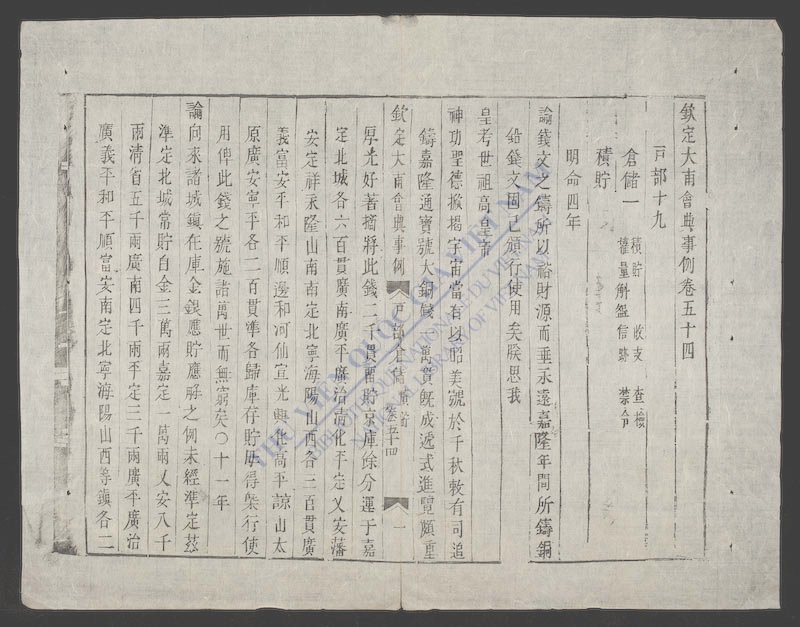 欽定大南會典事例卷五十四
戸部十九
倉儲一 積貯 收支 查檢
權量斛盤信跡 禁令
積貯
明命四年
諭錢文之鑄所以裕財源而垂永遠嘉隆年間所鑄銅
鉛錢文固已頒行使用矣朕思我
皇考世祖高皇帝
神功聖德撥揭宇宙當有以昭美號於千秋敕有司追
鑄嘉隆通寶號大銅錢一萬貫旣成遞式進覽頗重
欽定大南會典事例 戸部倉儲 積貯 卷五十四 一
厚光好著摘將此錢二千貫留貯京庫餘分運于嘉
定北城各六百貫廣南廣平廣治淸化平定乂安藩
安定祥永隆山南南定北寧海陽山西各三百貫廣
義富安平和平順邊和河仙宣光興化高平諒山太
原廣安寧平各二百貫準各歸庫存貯毋得槩行使
用俾此錢之號施諸萬世而無窮矣〇十一年
諭向來諸城鎭在庫金銀應貯應解之例未經準定茲
準定北城常貯白金三萬兩嘉定一萬兩乂安八千
兩淸省五千兩廣南四千兩平定三千兩廣平廣治
廣義平和平順富安南定北寧海陽山西等鎭各二
THƯ VIỆN QUỐC GIA VIỆT NAM
BIBLIOTHÈQUE NATIONALE DU VIETNAM
NATIONAL LIBRARY OF VIETNAM